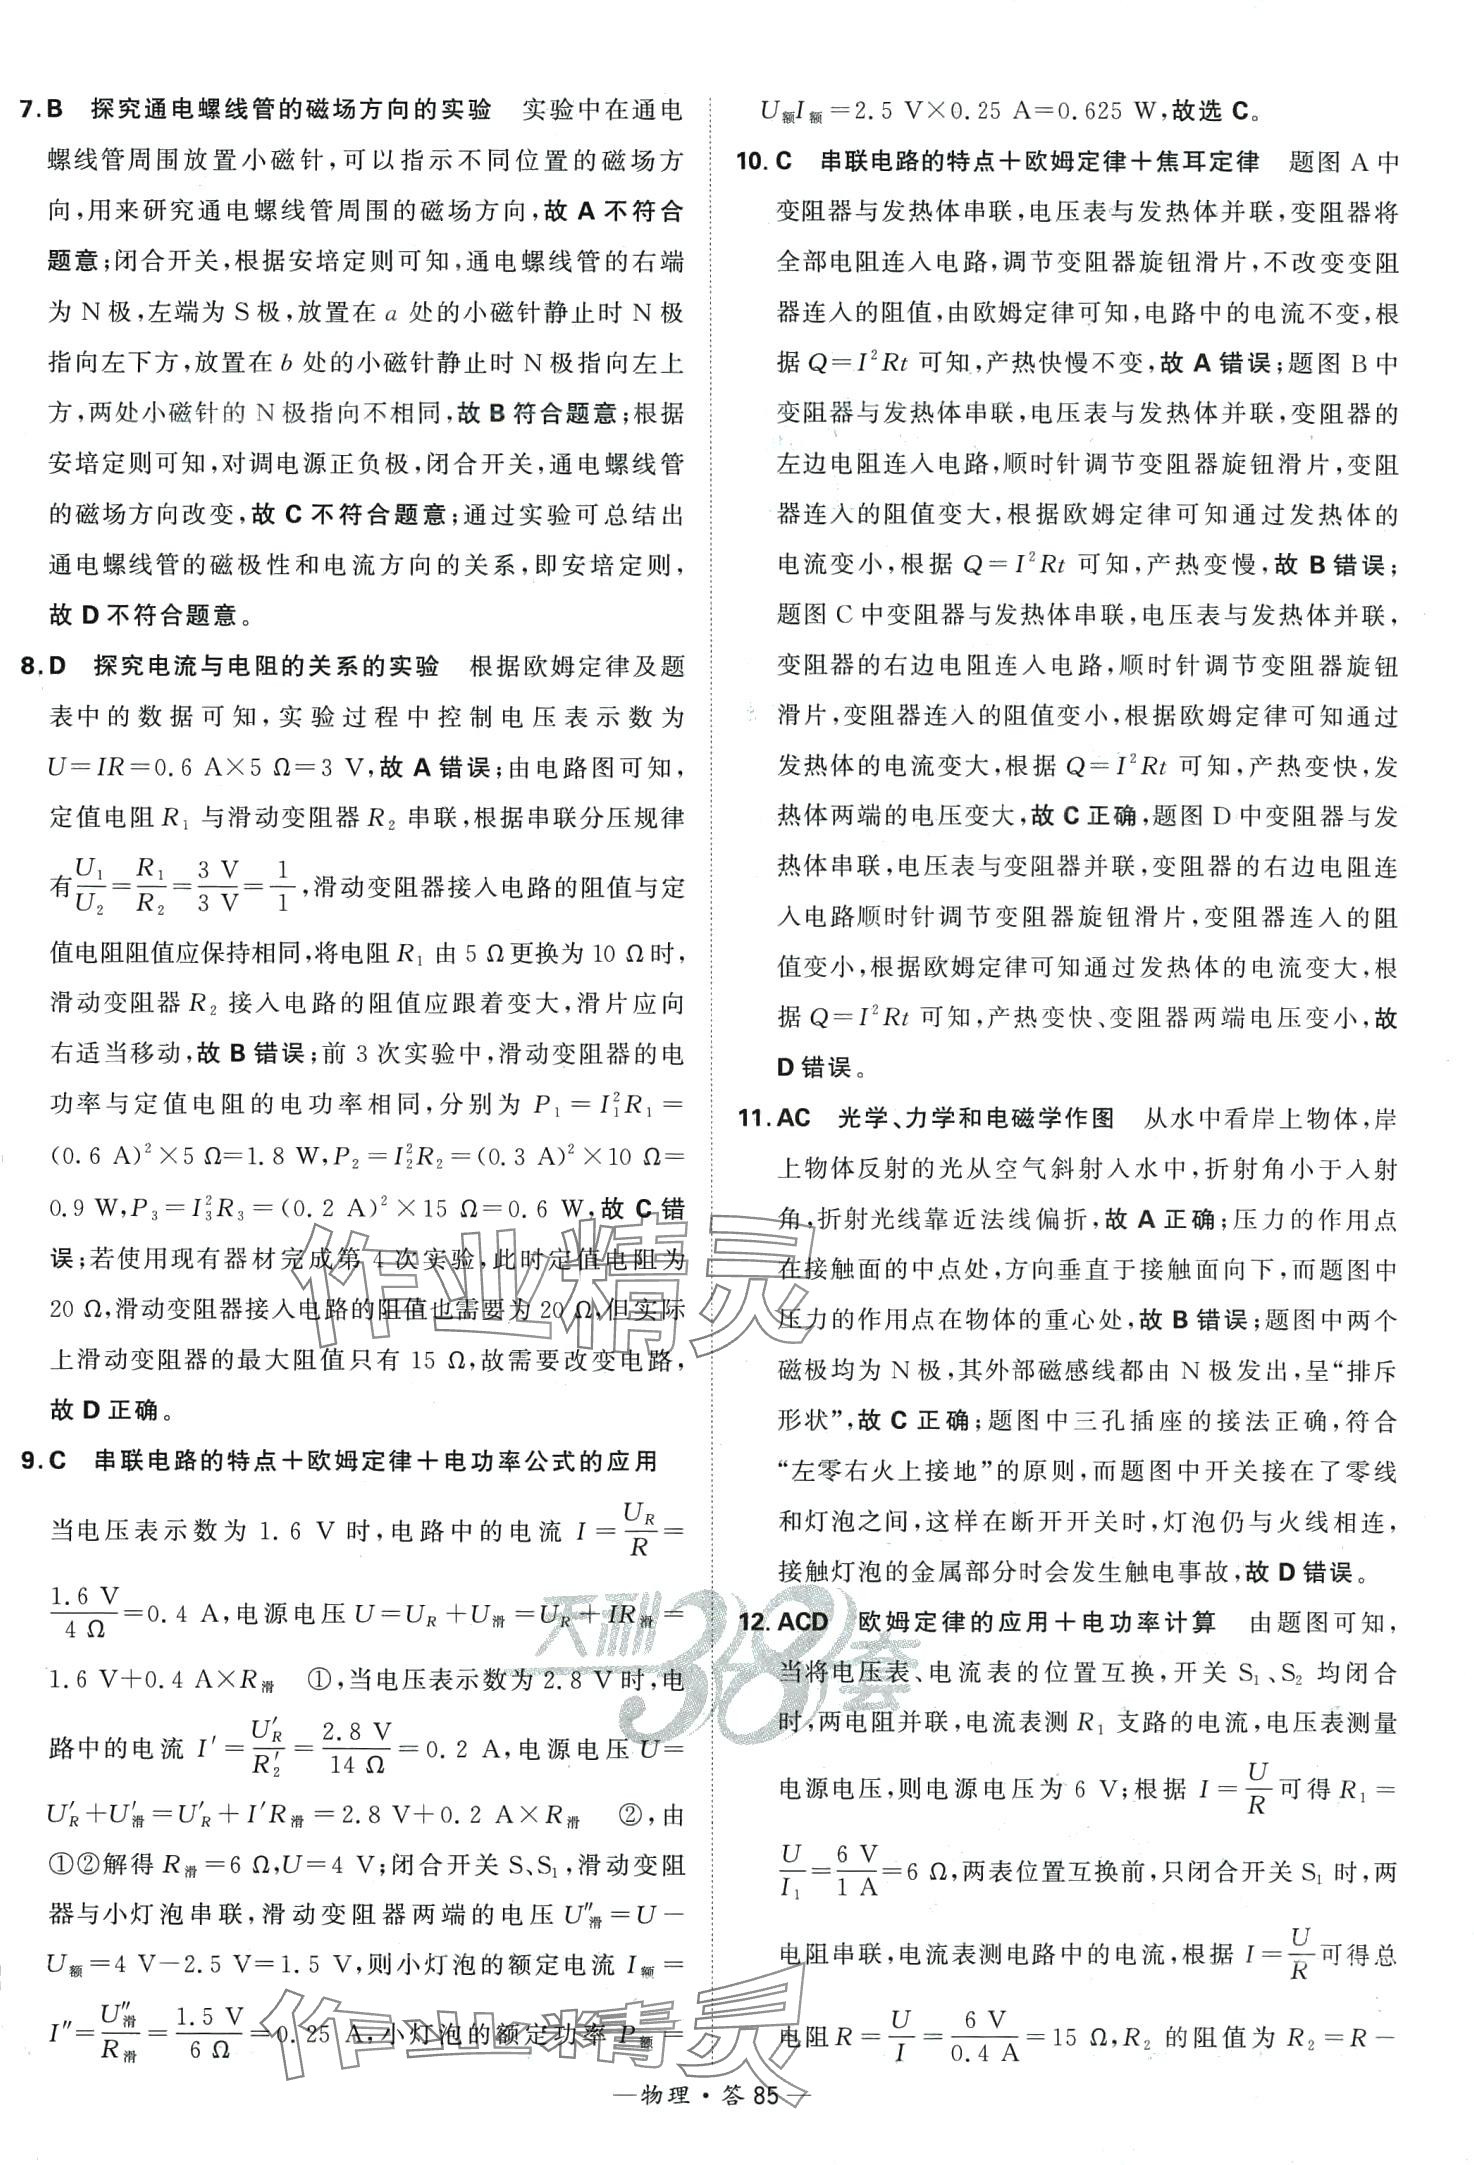 7. B　探究通电螺线管的磁场方向的实验　实验中在通电
螺线管周围放置小磁针,可以指示不同位置的磁场方
向,用来研究通电螺线管周围的磁场方向,故 A 不符合
题意;闭合开关,根据安培定则可知,通电螺线管的右端
为 N 极,左端为 S 极,放置在 a 处的小磁针静止时 N 极
指向左下方,放置在 b 处的小磁针静止时 N 极指向左上
方,两处小磁针的 N 极指向不相同,故 B 符合题意;根据
安培定则可知,对调电源正负极,闭合开关,通电螺线管
的磁场方向改变,故 C 不符合题意;通过实验可总结出
通电螺线管的磁极性和电流方向的关系,即安培定则,
故 D 不符合题意。
8. D　探究电流与电阻的关系的实验　根据欧姆定律及题
表中的数据可知,实验过程中控制电压表示数为
U=IR=0.6 A×5 Ω=3 V,故 A 错误;由电路图可知,
定值电阻 R₁ 与滑动变阻器 R₂ 串联,根据串联分压规律
有 U₁/U₂=R₁/R₂=3 V/3 V=1/1,滑动变阻器接入电路的阻值与定
值电阻阻值应保持相同,将电阻 R₁ 由 5 Ω 更换为 10 Ω 时,
滑动变阻器 R₂ 接入电路的阻值应跟着变大,滑片应向
右适当移动,故 B 错误;前 3 次实验中,滑动变阻器的电
功率与定值电阻的电功率相同,分别为 P₁=I₁²R₁=
(0.6 A)²×5 Ω=1.8 W,P₂=I₂²R₂=(0.3 A)²×10 Ω=
0.9 W,P₃=I₃²R₃=(0.2 A)²×15 Ω=0.6 W,故 C 错
误;若使用现有器材完成第 4 次实验,此时定值电阻为
20 Ω,滑动变阻器接入电路的阻值也需要为 20 Ω,但实际
上滑动变阻器的最大阻值只有 15 Ω,故需要改变电路,
故 D 正确。
9. C　串联电路的特点+欧姆定律+电功率公式的应用
当电压表示数为 1.6 V 时,电路中的电流 I=U_R/R=
1.6 V/4 Ω=0.4 A,电源电压 U=U_R+U滑=U_R+IR滑=
1.6 V+0.4 A×R滑　①,当电压表示数为 2.8 V 时,电
路中的电流 I′=U′_R/R′₂=2.8 V/14 Ω=0.2 A,电源电压 U=
U′_R+U′滑=U′_R+I′R滑=2.8 V+0.2 A×R滑　②,由
①②解得 R滑=6 Ω,U=4 V;闭合开关 S、S₁,滑动变阻
器与小灯泡串联,滑动变阻器两端的电压 U″滑=U-
U额=4 V-2.5 V=1.5 V,则小灯泡的额定电流 I额=
I″=U″滑/R滑=1.5 V/6 Ω=0.25 A,小灯泡的额定功率 P额=
U额I额=2.5 V×0.25 A=0.625 W,故选 C。
10. C　串联电路的特点+欧姆定律+焦耳定律　题图 A 中
变阻器与发热体串联,电压表与发热体并联,变阻器将
全部电阻连入电路,调节变阻器旋钮滑片,不改变变阻
器连入的阻值,由欧姆定律可知,电路中的电流不变,根
据 Q=I²Rt 可知,产热快慢不变,故 A 错误;题图 B 中
变阻器与发热体串联,电压表与发热体并联,变阻器的
左边电阻连入电路,顺时针调节变阻器旋钮滑片,变阻
器连入的阻值变大,根据欧姆定律可知通过发热体的
电流变小,根据 Q=I²Rt 可知,产热变慢,故 B 错误;
题图 C 中变阻器与发热体串联,电压表与发热体并联,
变阻器的右边电阻连入电路,顺时针调节变阻器旋钮
滑片,变阻器连入的阻值变小,根据欧姆定律可知通过
发热体的电流变大,根据 Q=I²Rt 可知,产热变快,发
热体两端的电压变大,故 C 正确,题图 D 中变阻器与发
热体串联,电压表与变阻器并联,变阻器的右边电阻连
入电路顺时针调节变阻器旋钮滑片,变阻器连入的阻
值变小,根据欧姆定律可知通过发热体的电流变大,根
据 Q=I²Rt 可知,产热变快、变阻器两端电压变小,故
D 错误。
11. AC　光学、力学和电磁学作图　从水中看岸上物体,岸
上物体反射的光从空气斜射入水中,折射角小于入射
角,折射光线靠近法线偏折,故 A 正确;压力的作用点
在接触面的中点处,方向垂直于接触面向下,而题图中
压力的作用点在物体的重心处,故 B 错误;题图中两个
磁极均为 N 极,其外部磁感线都由 N 极发出,呈“排斥
形状”,故 C 正确;题图中三孔插座的接法正确,符合
“左零右火上接地”的原则,而题图中开关接在了零线
和灯泡之间,这样在断开开关时,灯泡仍与火线相连,
接触灯泡的金属部分时会发生触电事故,故 D 错误。
12. ACD　欧姆定律的应用+电功率计算　由题图可知,
当将电压表、电流表的位置互换,开关 S₁、S₂ 均闭合
时,两电阻并联,电流表测 R₁ 支路的电流,电压表测量
电源电压,则电源电压为 6 V;根据 I=U/R 可得 R₁=
U/I₁=6 V/1 A=6 Ω,两表位置互换前,只闭合开关 S₁ 时,两
电阻串联,电流表测电路中的电流,根据 I=U/R 可得总
电阻 R=U/I=6 V/0.4 A=15 Ω,R₂ 的阻值为 R₂=R-
作业精灵
天利38套
作业精灵
—物理·答 85—